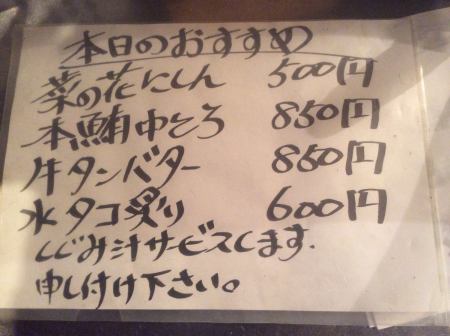 本日のおすすめ
菜の花にしん 500円
本鮪中とろ 850円
牛タンバター 850円
水タコ炙り 600円
しじみ汁サービスします.
申し付け下さい。